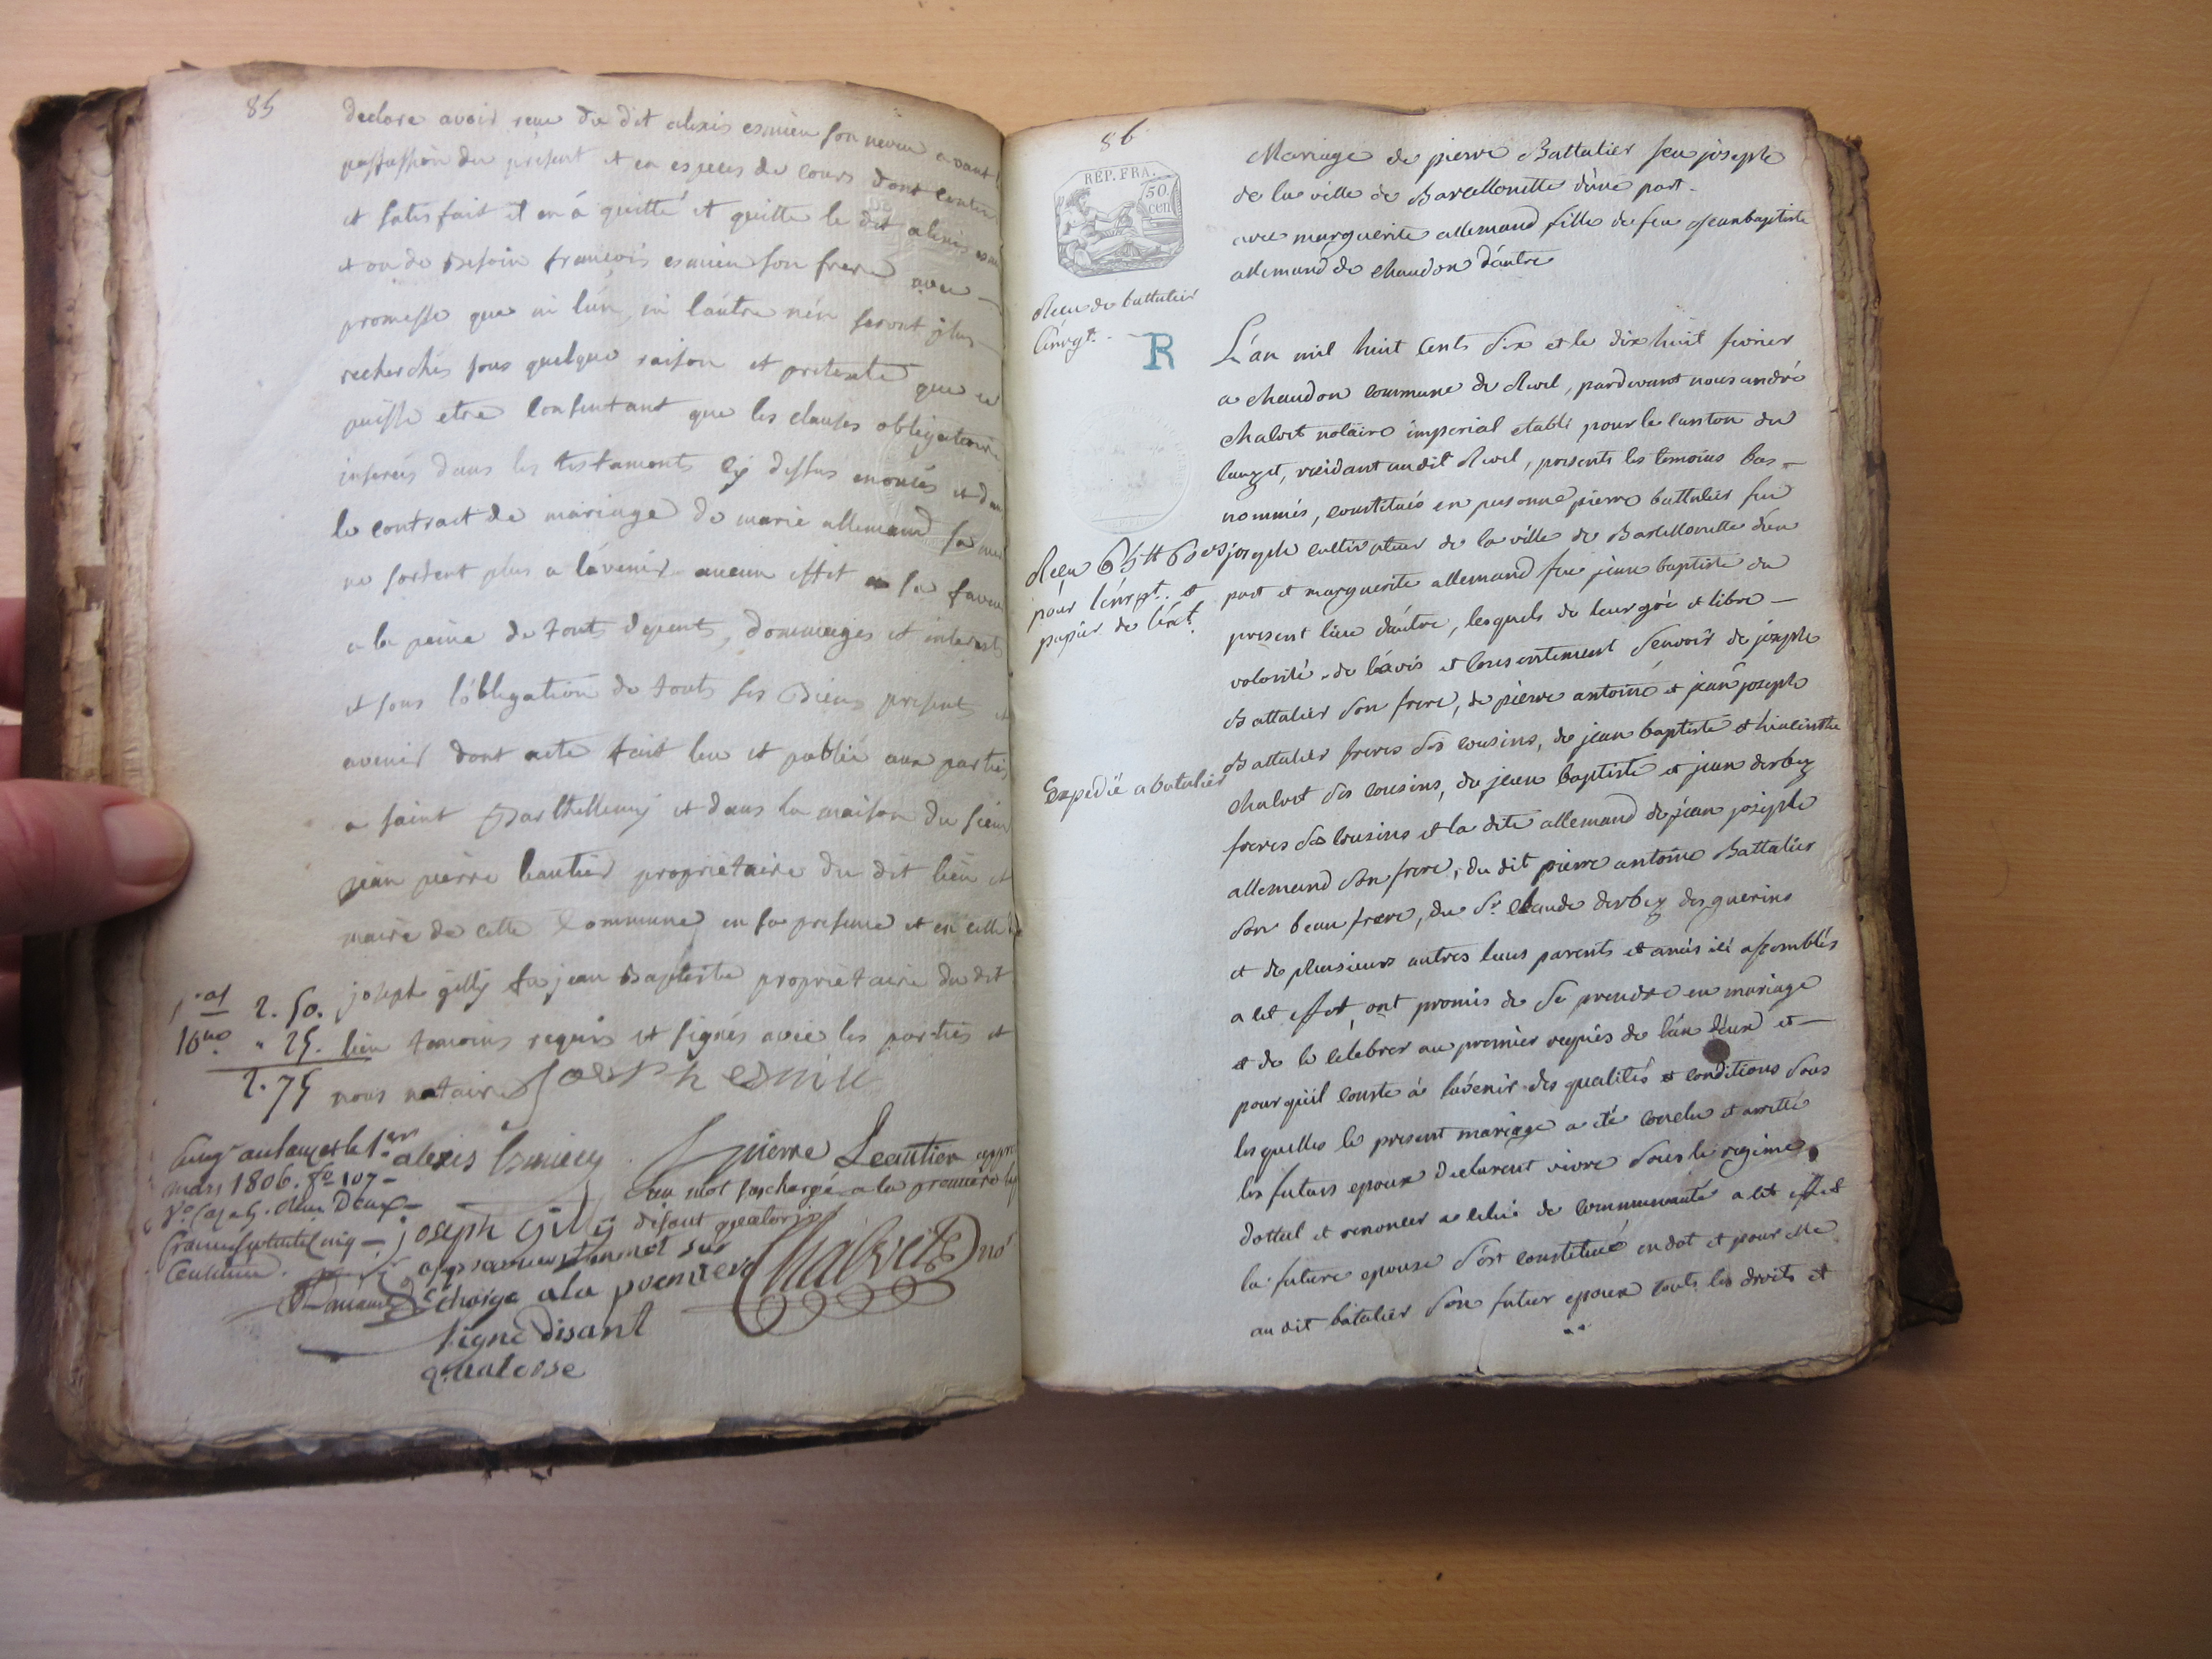 85
declare avoir reçu du dit alexis esmieu son neveu avant
passassion du present et en especes de cours dont content
et satisfait il en á quitté et quitte le dit alexis
et ou de besoin françois esmieu son frere avec
promesse que ni lún, ni láutre nén seront plus
recherchés sous quelque raison et pretexte que ce
puisse etre consentant que les clauses obligatoires
inserées dans les testaments cy dessus enoncés et dans
le contract de mariage de marie allemand sa
ne sortent plus a lávenir aucun effet a sa faveur
a la peine de touts depents, dommages et interests
et sous lóbligation de touts ses biens presents et
avenir dont acte fait leu et publié aux parties
a saint Barthellemy et dans la maison du sieur
jean pierre leautier proprietaire du dit lieu et
maire de cette Commune en sa presence et en celle de
joseph gilly fu jean Baptiste proprietaire du dit
lieu temoins requis et signés avec les parties et
nous notaire Joseph esmieu
2. 50.
10me " 25.
2. 75
alexis Esmieu J pierre Leautier
un mot surchargé a la premiere
joseph Gilly disant quatorze
aprouvant un mot sur
charge a la premiere Chalvet no
ligne disant
quatorse
Enrg au lauzet le 1er
mars 1806. fo 107
vo Ca 5. Reçu Deux
francs soixante quinze
Centimes.
86
REP. FRA.
50. cen
Mariage de pierre Battalier feu joseph
de la ville de Barcellonette dúne part
avec marguerite allemand fille de feu Jean baptiste
allemand de Chaudon dáutre
Reçu de battalier
lénrgt.
R
L'an mil huit Cents six et le dix huit fevrier
a Chaudon commune de Revel, pardevant nous andré
Chalvet notaire imperial etabli pour le canton du
lauzet, residant audit Revel, presents les temoins bas
nommés, constitués en personne pierre battalier feu
joseph cultivateur de la ville de Barcellonette dúne
part et marguerite allemand feu jean baptiste du
present lieu dáutre, lesquels de leur gré et libre
volonté, de lávis et consentement sçavoir de joseph
Battalier son frere, de pierre antoine et jean joseph
Battalier freres ses cousins, de jean baptiste et hiacinthe
Chalvet ses cousins, de jean baptiste et jean derbez
freres ses cousins et la dite allemand de jean joseph
allemand son frere, du dit pierre antoine Battalier
son beau frere, du Sr Claude derbez des guerins
et de plusieurs autres leurs parents et amis ici assemblés
a cet effet, ont promis de se prendre en mariage
et de le celebrer au premier requis de lún déux et
pour quíl conste á lávenir des qualités et conditions sous
lesquelles le present mariage a eté conclu et arretté
les futurs epoux declarent vivre sous le regime
dottal et renoncer a celui de communauté a cet effet
la future epouse sést constituée en dot et pour elle
au dit batalier son futur epoux touts les droits et
Reçu 6
pour lénrgt. et
papier de léxt.
Expedié a batalier